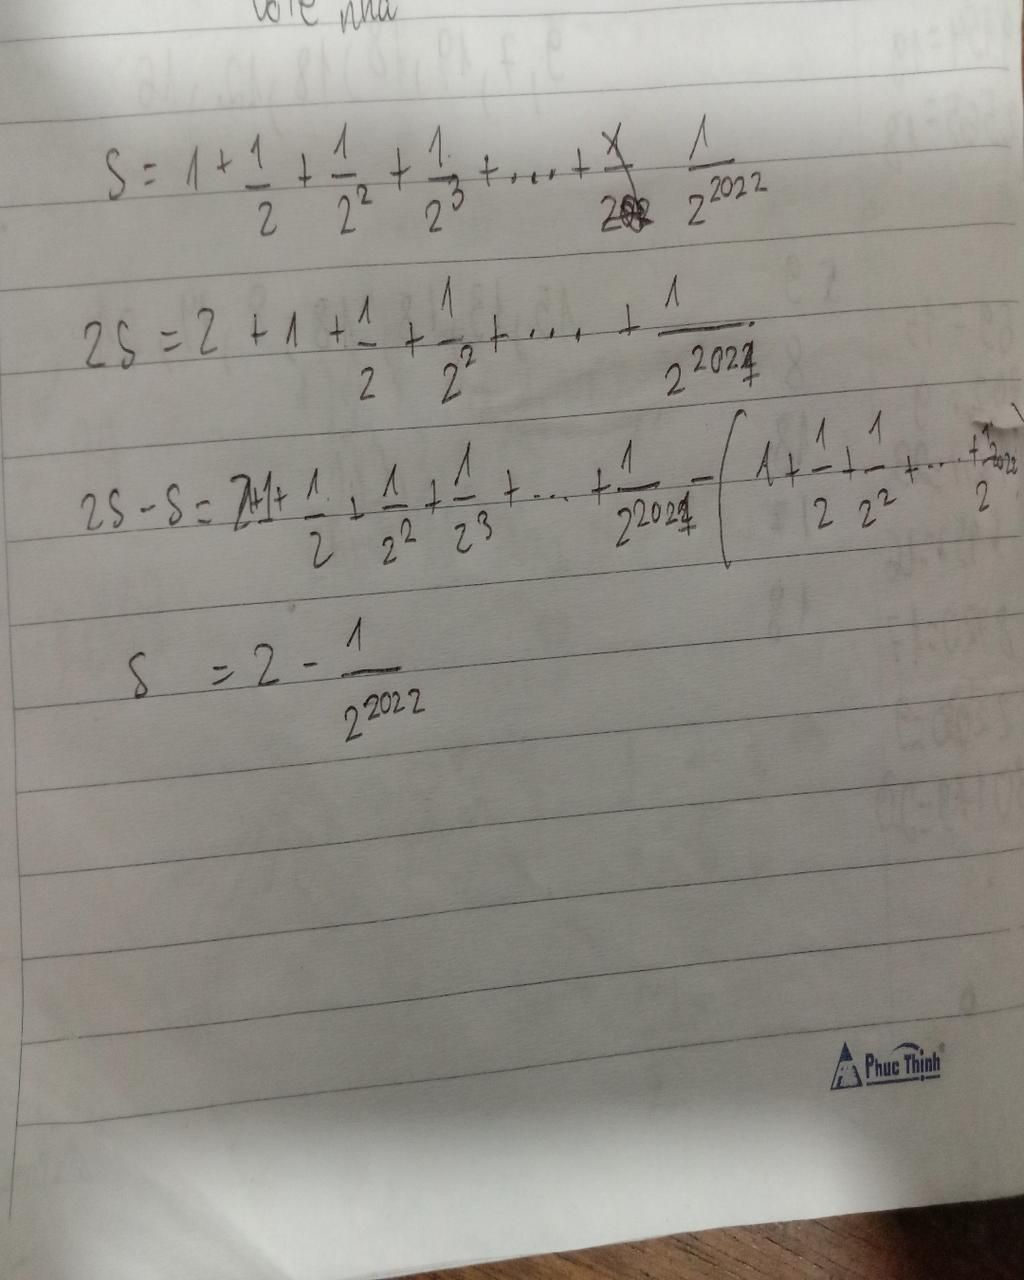 vote nha
S = 1 + 1/2 + 1/2^2 + 1/2^3 + ... + 1/2^2022
2S = 2 + 1 + 1/2 + 1/2^2 + ... + 1/2^2021
2S - S = 2+1+ 1/2 + 1/2^2 + 1/2^3 + ... + 1/2^2021 - (1 + 1/2 + 1/2^2 + ... + 1/2^2022)
S = 2 - 1/2^2022
Phuc Thinh